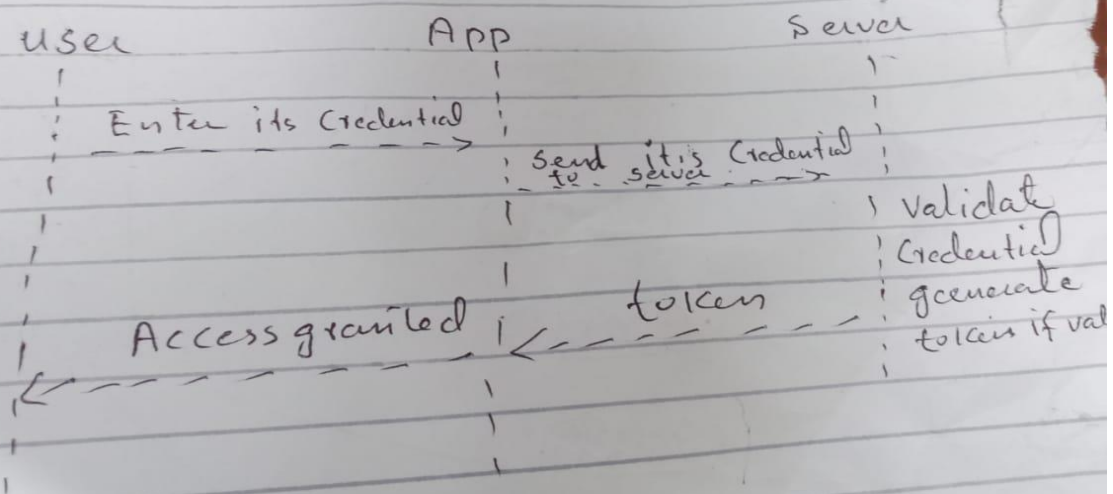 User App Server
Enter its Credential
Send it's Credential
to server
validat
Credential
generate
token if val
token
Access granted